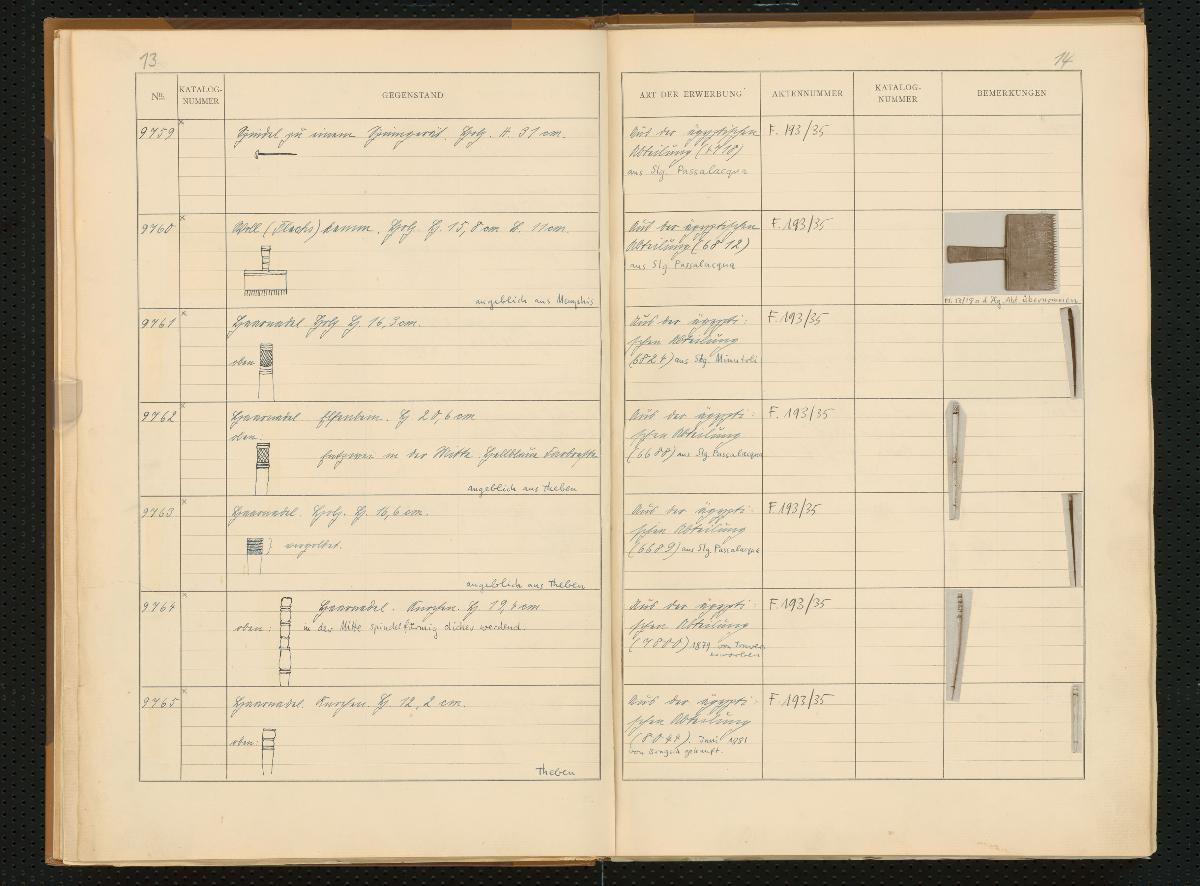 13
No.
KATALOG-
NUMMER
GEGENSTAND
9759
Spindel zu einem Spinngerät. Holz. H. 31 cm.
9760
Woll (Flachs) kamm. Holz H. 15,8 cm B. 11 cm.
angeblich aus Memphis
9761
Haarnadel Holz H. 16,3 cm.
oben
9762
Haarnadel Elfenbein. H 20,6 cm
oben:
Entzwei in der Mitte. Hellblaue
angeblich aus Theben
9763
Haarnadel. Holz. H. 16,6 cm.
vergoldet.
angeblich aus Theben
9764
Haarnadel. Knochen. H. 19,4 cm
oben: in der Mitte spindelförmig dicker werdend.
9765
Haarnadel. Knochen. H. 12,2 cm.
oben:
Theben
14
ART DER ERWERBUNG
AKTENNUMMER
KATALOG-
NUMMER
BEMERKUNGEN
Aus der ägyptischen F. 193/35
Abteilung
aus Slg. Passalacqua
Aus der ägyptischen F. 193/35
Abteilung (6812)
aus Slg. Passalacqua
d. Äg. Abt. übernommen
Aus der ägypti- F. 193/35
schen Abteilung
(6824) aus Slg. Minutoli
Aus der ägypti- F. 193/35
schen Abteilung
(6688) aus Slg. Passalacqua
Aus der ägypti- F. 193/35
schen Abteilung
(6689) aus Slg. Passalacqua
Aus der ägypti- F. 193/35
schen Abteilung
(7800) 1879 von
erworben
Aus der ägypti- F. 193/35
schen Abteilung
(8044). Juni
von Brugsch gekauft.